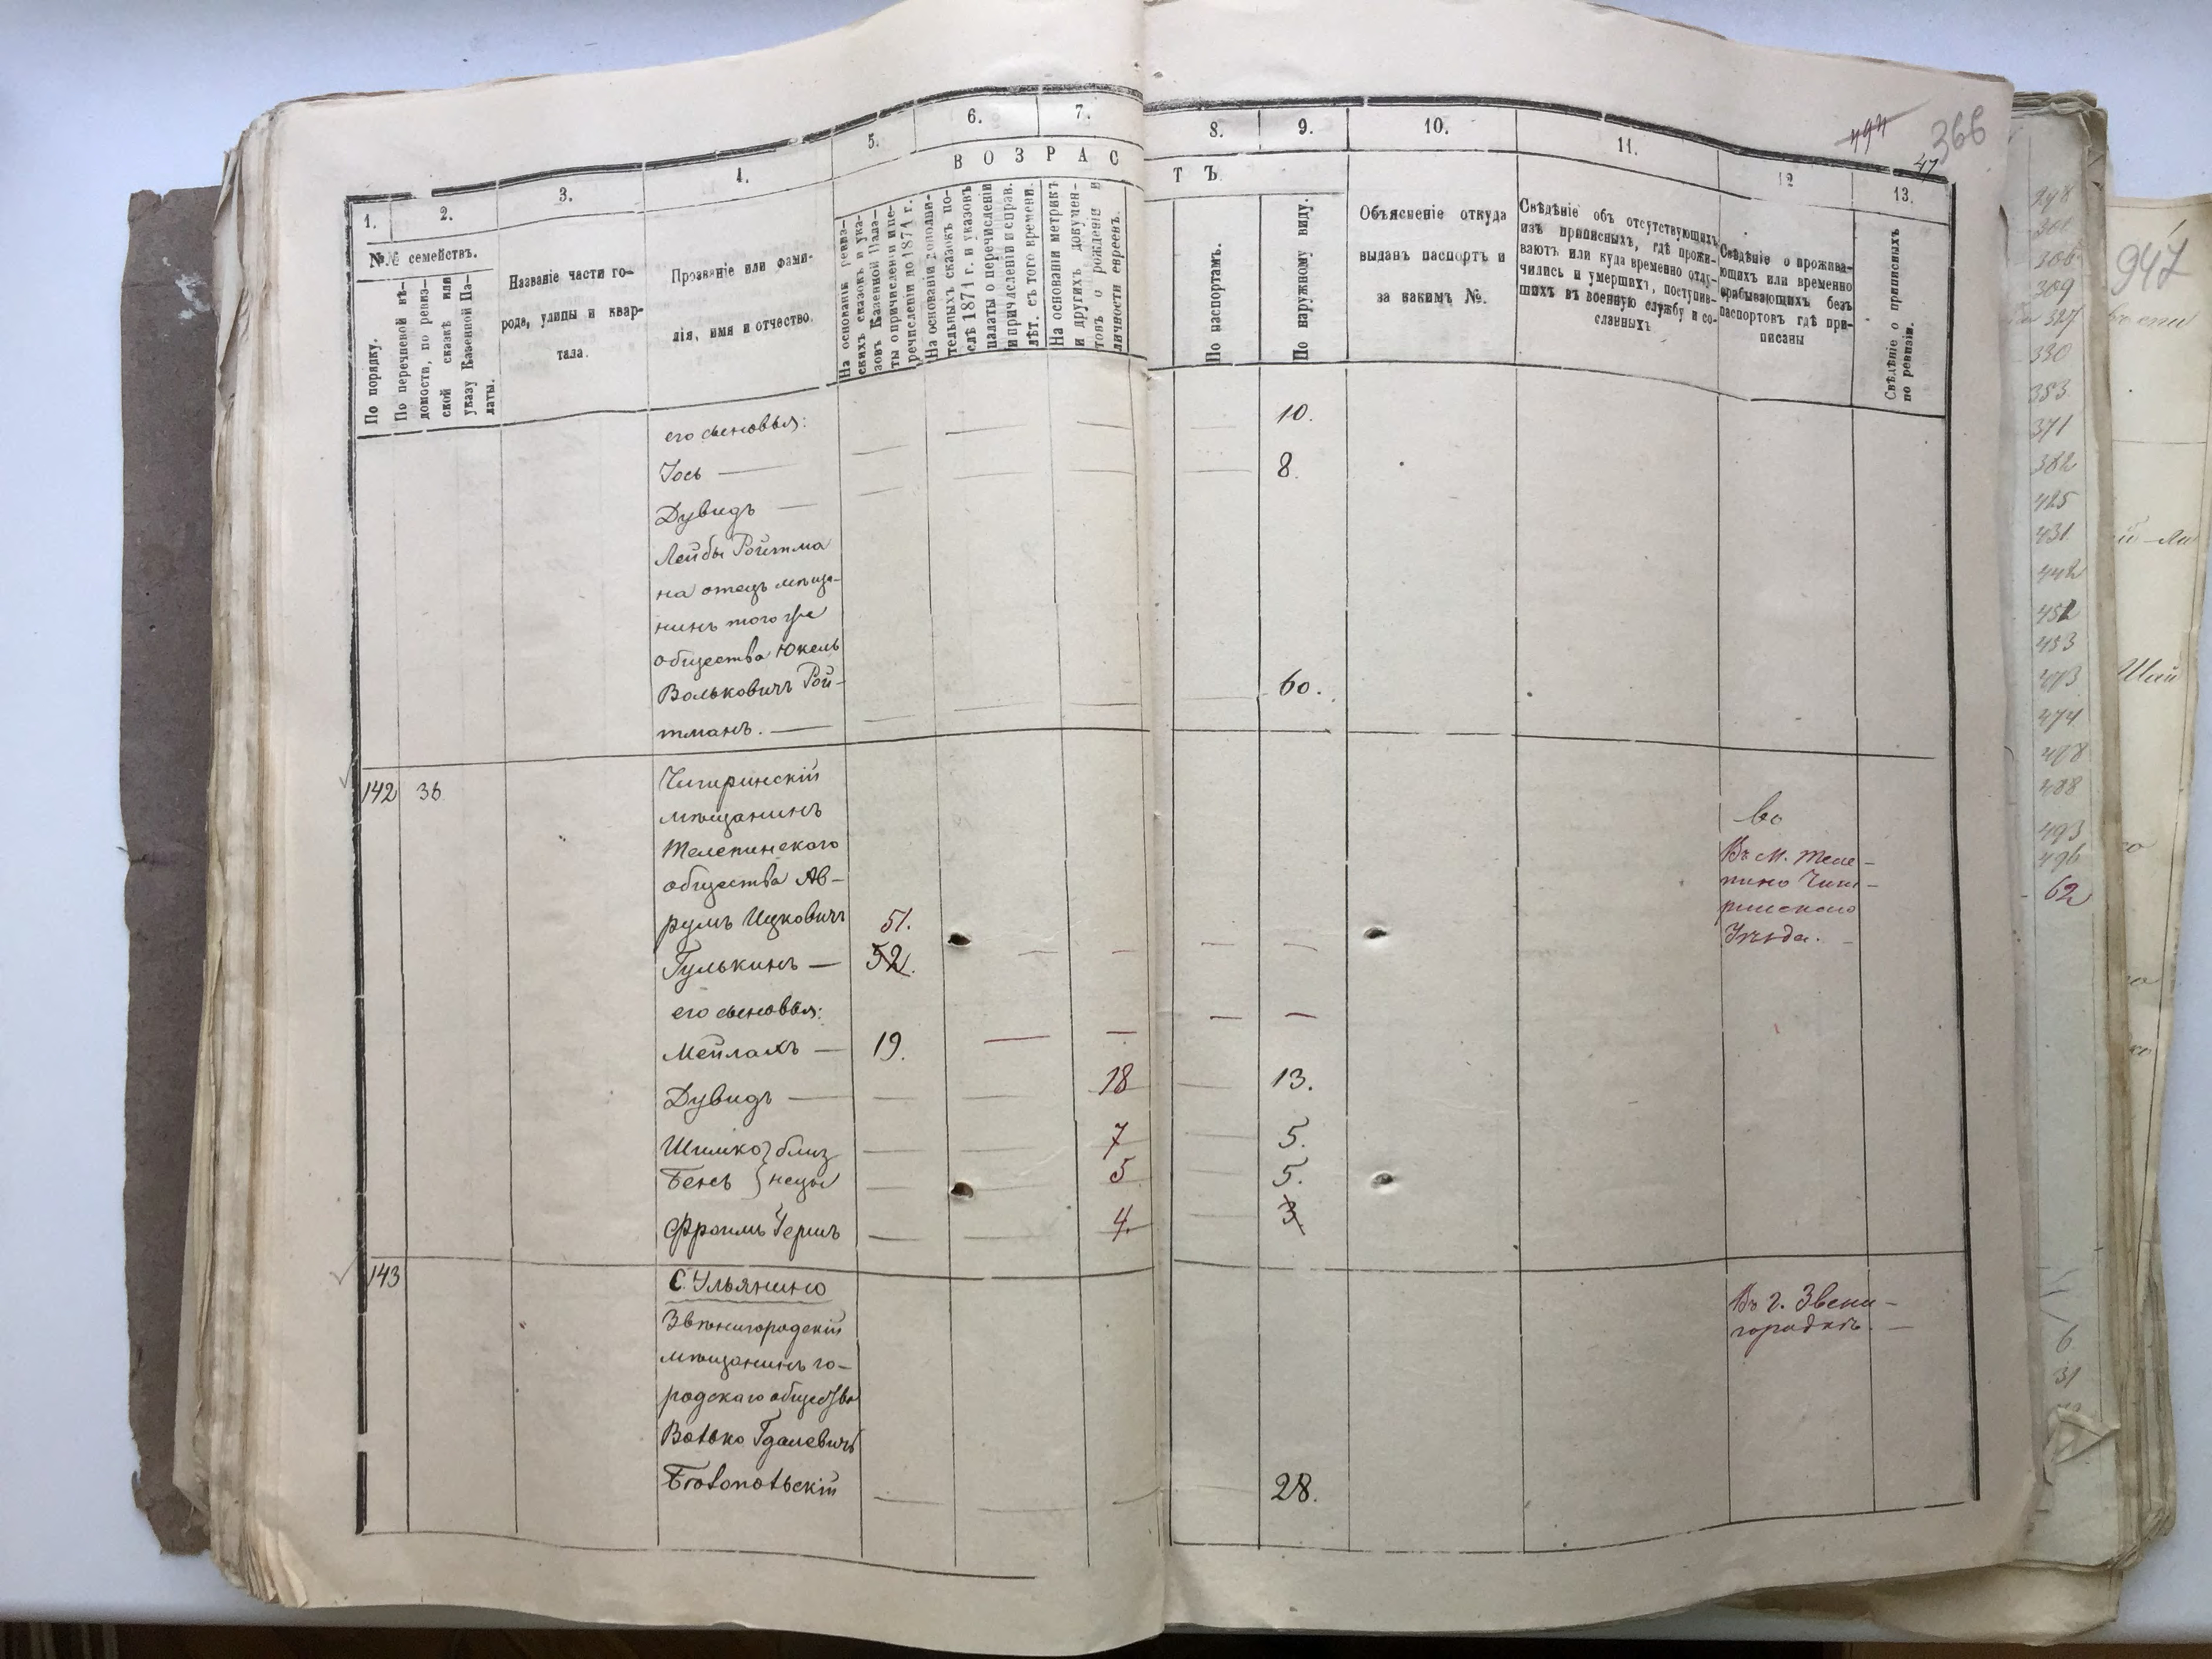 1.
2.
3.
4.
5.
6.
7.
8.
9.
10.
11.
12
13.
494
366
47
ВОЗРАС
ТЪ.
№№ семействъ.
По порядку.
По перечневой вѣ-
домости, по ревиз-
ской сказкѣ или
указу Казенной Па-
латы.
Названіе части го-
рода, улицы и квар-
тала.
Прозваніе или фами-
лія, имя и отчество.
На основаніи ревиз-
скихъ сказокъ и ука-
зовъ Казенной Пала-
ты о причисленіи и пе-
речисленіи до 1874 г.
На основаніи дополни-
тельныхъ сказокъ по-
слѣ 1874 г. и указовъ
палаты о перечисленіи
и причисленіи и справ.
лѣт. съ того времени.
На основаніи метрикъ
и другихъ докумен-
товъ о рожденіи и
личности евреевъ.
По паспортамъ.
По наружному виду.
Объясненіе откуда
выданъ паспортъ и
за какимъ №.
Свѣдѣніе объ отсутствующихъ
изъ приписныхъ, гдѣ прожи-
ваютъ или куда временно отлу-
чились и умершихъ, поступив-
шихъ въ военную службу и со-
сланныхъ
Свѣдѣніе о прожива-
ющихъ или временно
прабывающихъ безъ
паспортовъ гдѣ при-
писаны
Свѣдѣніе о приписныхъ
по ревизіи.
его сыновья:
10.
Іось — 8.
Дувидъ —
Лейбы Ройтма
на отецъ мѣща-
нинъ того же
общества Юкель
Вольковичъ Рой- 60.
тманъ. —
142 36 Чигиринскій
мѣщанинъ
Телепинского
общества Ав-
румъ Ицковичъ 51.
Гулькинъ — 52.
Въ м. Теле-
пино Чиги-
ринскаго
Уѣзда.
его сыновья:
Мейлахъ — 19.
Дувидъ — 18 13.
Шимко } близ 7 5.
Бень } нецы 5 5.
Фроимъ Гершъ 4. 3
143 С. Ульянино
Звенигородскій
мѣщанинъ го-
родскаго общества
Волько Гдалевичъ
Богопольскій 28.
Въ г. Звени-
городкѣ.
298
301
306
309
327
330
353
371
382
425
431
442
452
453
473
474
478
488
493
496
62
6
31
947
Шай